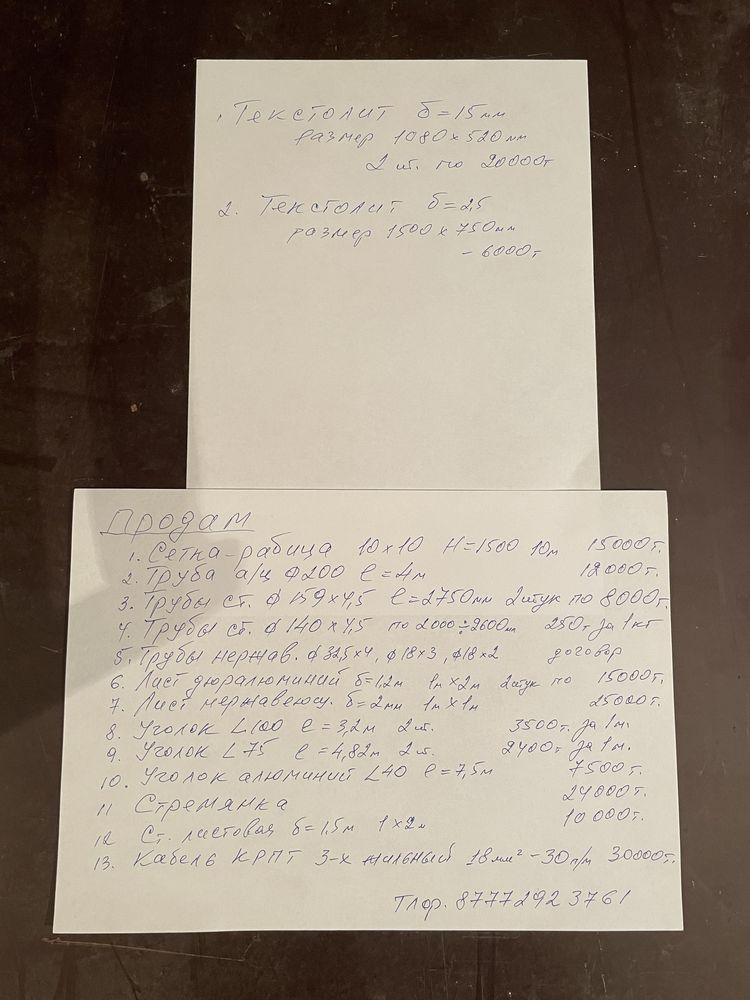 1 Текстолит б=15мм
размер 1080х520мм
2 шт. по 20000т
2. Текстолит б=2,5
размер 1500х750мм
- 6000т
Продам
1. Сетка-рабица 10х10 H=1500 10м 15000т.
2. Труба а/ц ф200 l=4м 12000т.
3. Трубы ст. ф159х4,5 l=2750мм 2штук по 8000т.
4. Трубы ст. ф140х4,5 по 2000÷2600мм 250т за 1кг
5. Трубы нержав. ф32,5х4, ф18х3, ф18х2 договор
6. Лист дюралюминий б=1,2м 1мх2м 2штук по 15000т.
7. Лист нержавеющ. б=2мм 1мх1м 25000т.
8. Уголок L100 l=3,2м 2шт. 3500т. за 1м.
9. Уголок L75 l=4,82м 2шт. 2400т за 1м.
10. Уголок алюминий L40 l=7,5м 7500т.
11 Стремянка 24000т.
12 Ст. листовая б=1,5м 1х2м 10000т.
13. Кабель КРПТ 3-х жильный 18мм² -30п/м 30000т.
Тлф. 87772923761